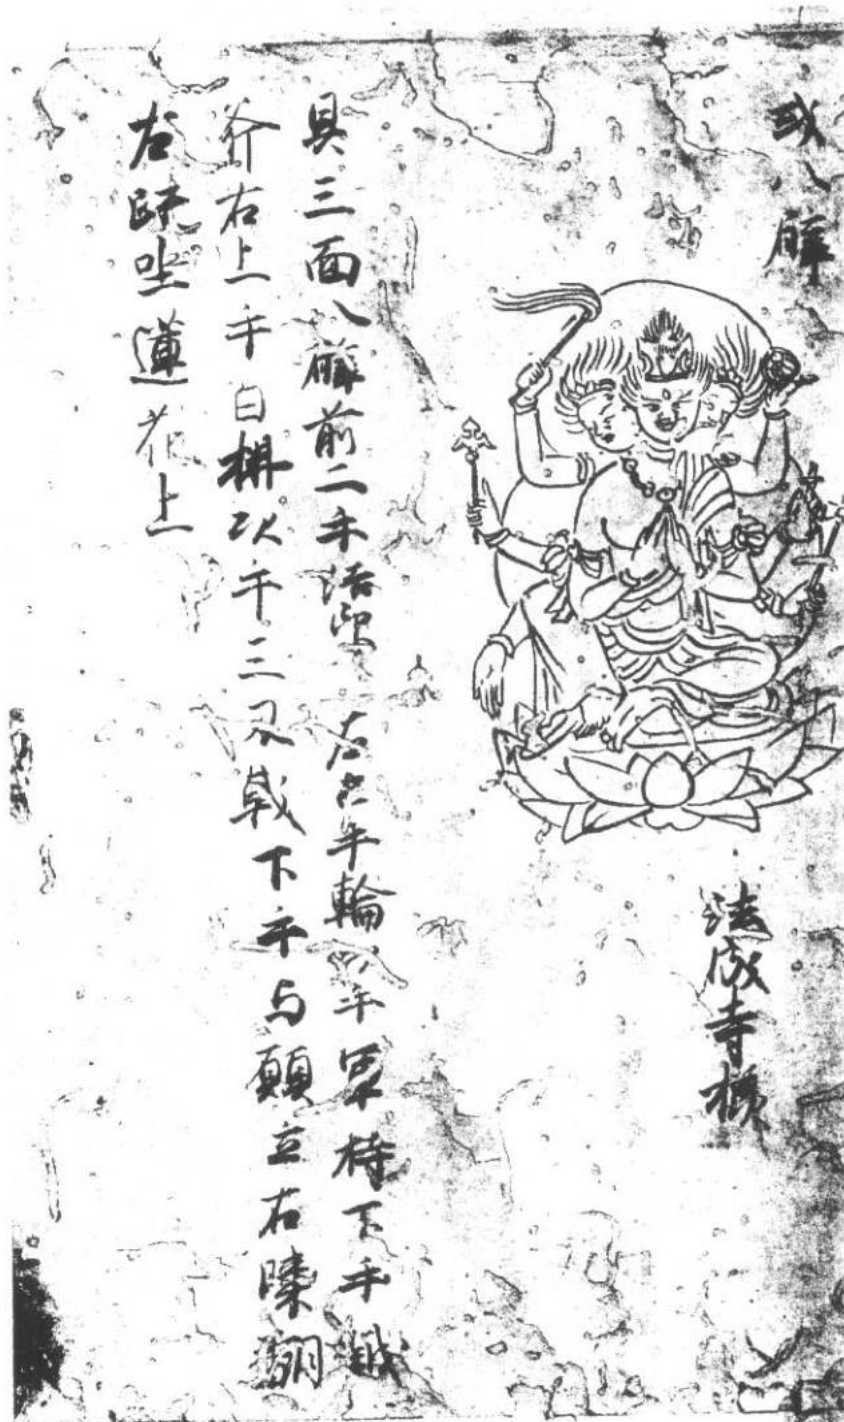 或八臂
法成寺様
具三面八臂前二手結印 左上手輪 次手軍持下手鉞
斧右上手白拂次手三叉戟下手与願立右膝
左跌坐蓮花上